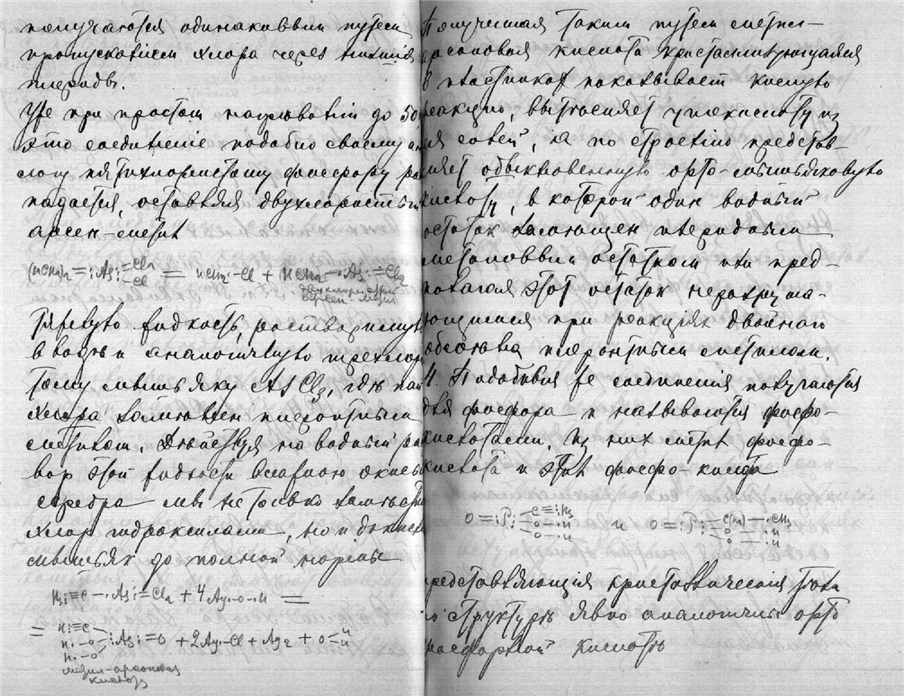 получаются одинаковым путем
пропусканием хлора через
пероды.
Уже при простом нагревании до 50
это соединение подобно своему
логу пятихлористому фосфору
падается, оставляя двухлористый
арсен-метил
= :As: –Cl = –Cl + –As: =Cl₂
двухлористый
арсен-метил
жидкость, растворимую
в воде и аналогичную треххлор
тому мышьяку AsCl₃, где
хлора замещен
метилом. Действуя на водный рас
вор этой жидкости окисью
серебра мы не только замещаем
хлор гидроксилами, но и
мышьяк до полной нормы
H₃≡C–As:=Cl₂ + 4Ag–O–H =
= H₃≡C– H.–O– H.–O– :As:=O + 2Ag–Cl + Ag₂ + O
метил-арсоновая
кислота
Полученная таким путем метил–
арсоновая кислота кристаллизующаяся
в пластинках показывает кислую
реакцию, вытесняет углекислоту из
ея солей, а по строению представ–
ляет обыкновенную орто-мышьяковую
кислоту, в которой один водный
остаток замещен
метиловым остатком
этот остаток
при реакциях двойного
обмена метилом.
4. Подобныя же соединения получаются
для фосфора и называются фосфо–
кислотами. Из них метил фосфо–
кислота и этил фосфо-кислота
O=:P: –C≡H₃ –O–H –O–H и O=:P: –C(H₂)–CH₃ –O–H –O–H
представляющия кристаллическия тела
по структуре явно аналогичны орто
фосфорной кислоте